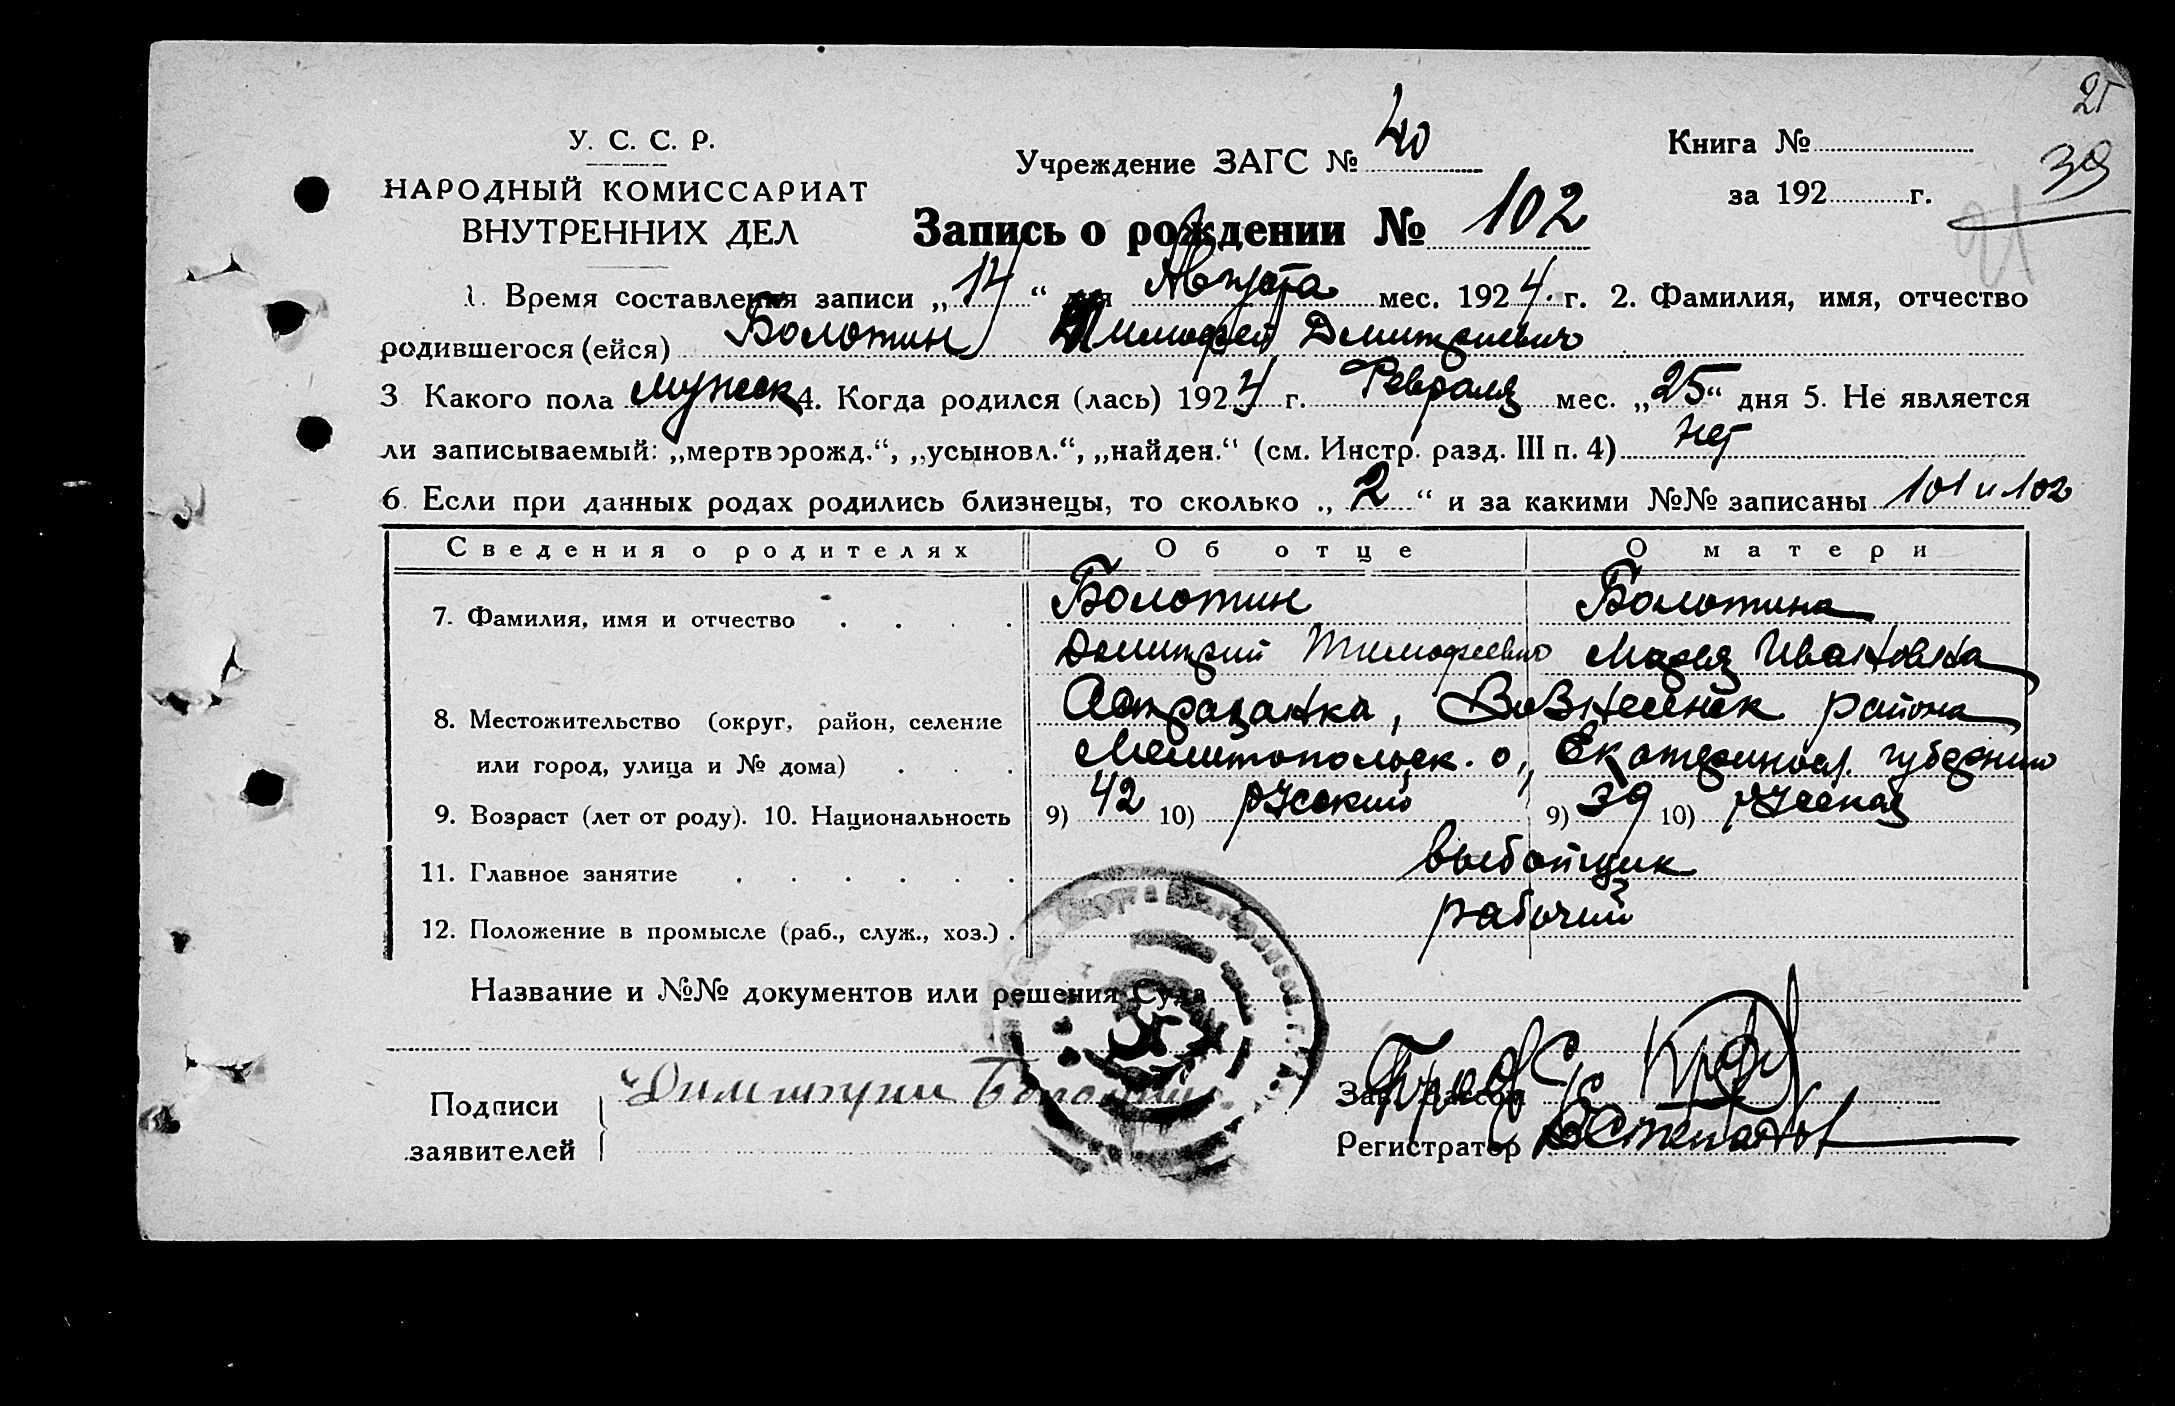 21
39
У. С. С. Р.
НАРОДНЫЙ КОМИССАРИАТ
ВНУТРЕННИХ ДЕЛ
Учреждение ЗАГС № 40
Книга №
за 192 г.
21
Запись о рождении № 102
1. Время составления записи „14“ дня Августа мес. 1924. г. 2. Фамилия, имя, отчество
родившегося (ейся) Болотин Тимофей Дмитриевич
3 Какого пола мужеск 4. Когда родился (лась) 1924 г. Февраля мес. „25“ дня 5. Не является
ли записываемый: „мертворожд.“, „усыновл.“, „найден.“ (см. Инстр. разд. III п. 4) нет
6. Если при данных родах родились близнецы, то сколько „2“ и за какими №№ записаны 101 и 102
Сведения о родителях Об отце О матери
7. Фамилия, имя и отчество Болотин Болотина
Дмитрий Тимофеевич Марья Ивановна
8. Местожительство (округ, район, селение Астраханка, Вознесенск района
или город, улица и № дома) Мелитопольск. о, Екатериносл. губернии
9. Возраст (лет от роду). 10. Национальность 9) 42 10) русский 9) 39 10) русская
11. Главное занятие выбойщик
12. Положение в промысле (раб., служ., хоз.) рабочий
Название и №№ документов или решения Суда
Подписи Димитрии Болотин Зав. Загсом
заявителей Регистратор ВСтепанов